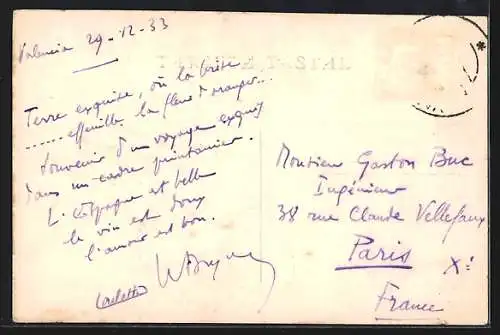 Valencia 29-12-33
TARJETA POSTAL
Terre exquise, où la brise
...... effeuille la fleur d'oranger...
Souvenir d'un voyage exquis
dans un cadre printanier.
L'Espagne est belle
le vin est doux
l'amour est bon.
Monsieur Gaston Buc
Ingénieur
38 rue Claude Vellefaux
Paris
Xè
France